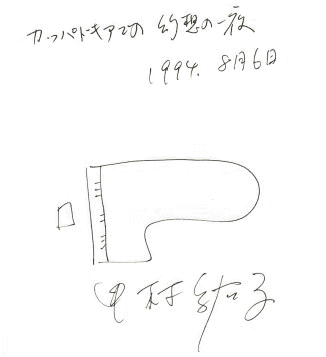 カッパドキアでの 幻想の一夜
1994. 8月6日
中村紘子